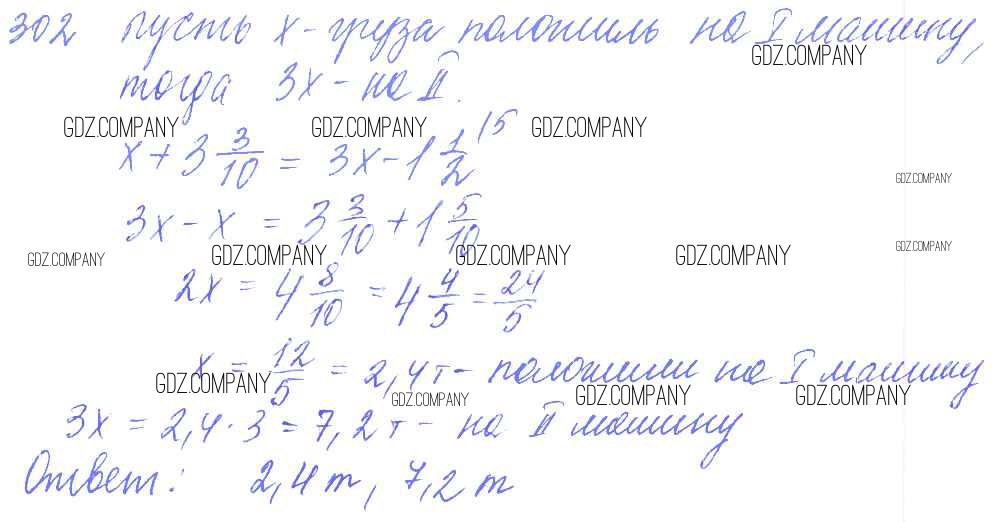 302 Пусть x - груза положиль на I машину,
тогда 3x - на II.
GDZ.COMPANY
GDZ.COMPANY GDZ.COMPANY GDZ.COMPANY
x + 3 3/10 = 3x - 1 1/2 \5
GDZ.COMPANY
3x - x = 3 3/10 + 1 5/10
GDZ.COMPANY GDZ.COMPANY GDZ.COMPANY GDZ.COMPANY GDZ.COMPANY
2x = 4 8/10 = 4 4/5 = 24/5
x = 12/5 = 2,4 т - положили на I машину
GDZ.COMPANY GDZ.COMPANY GDZ.COMPANY GDZ.COMPANY
3x = 2,4 · 3 = 7,2 т - на II машину
Ответ: 2,4 т, 7,2 т